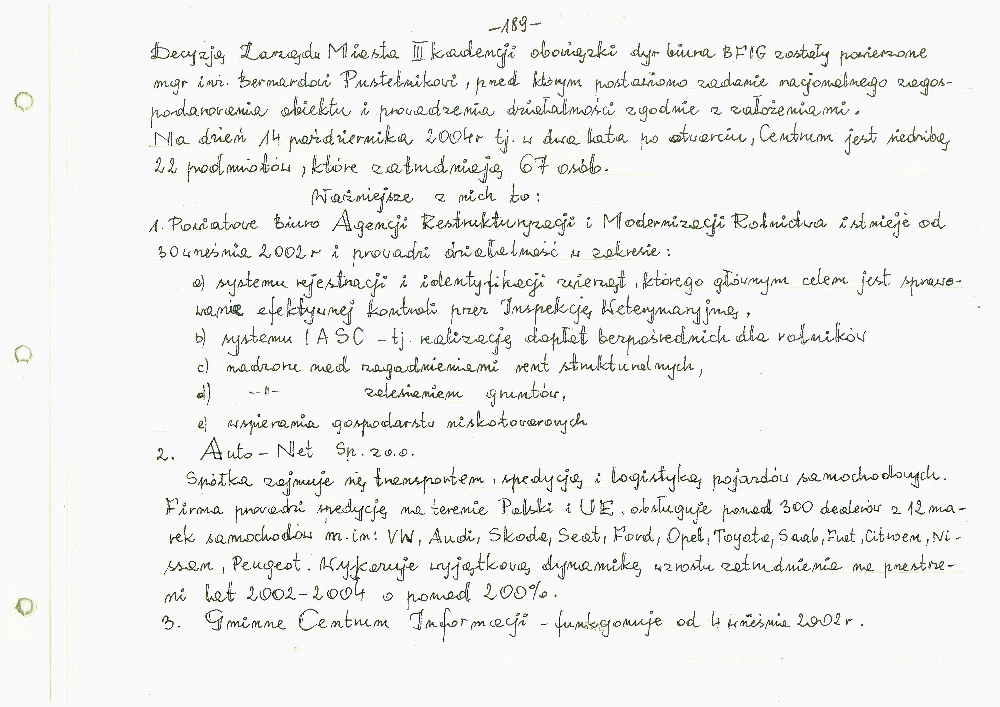 -189-
Decyzją Zarządu Miasta III kadencji obowiązki dyr biura BFIG zostały powierzone
mgr inż. Bernardowi Pustelnikowi, przed którym postawiono zadanie racjonalnego zagos-
podarowania obiektu i prowadzenia działalności zgodnie z założeniami.
Na dzień 14 października 2004r tj. w dwa lata po otwarciu, Centrum jest siedzibą
22 podmiotów, które zatrudniają 67 osób.
Ważniejsze z nich to:
1. Powiatowe Biuro Agencji Restrukturyzacji i Modernizacji Rolnictwa istnieje od
30 września 2002r i prowadzi działalność w zakresie:
a) systemu rejestracji i identyfikacji zwierząt, którego głównym celem jest sprawo-
wanie efektywnej kontroli przez Inspekcję Weterynaryjną,
b) systemu IASC - tj. realizację dopłat bezpośrednich dla rolników
c) nadzoru nad zagadnieniami rent strukturalnych,
d) -"- zalesianiem gruntów,
e) wspierania gospodarstw niskotowarowych
2. Auto-Net Sp. z o.o.
Spółka zajmuje się transportem, spedycją i logistyką pojazdów samochodowych.
Firma prowadzi spedycję na terenie Polski i UE, obsługuje ponad 300 dealerów z 12 ma-
rek samochodów m.in: VW, Audi, Skoda, Seat, Ford, Opel, Toyota, Saab, Fiat, Citroen, Ni-
ssan, Peugeot. Wykazuje wyjątkową dynamikę wzrostu zatrudnienia na przestrze-
ni lat 2002-2004 o ponad 200%.
3. Gminne Centrum Informacji - funkcjonuje od 4 wrześnie 2002r.